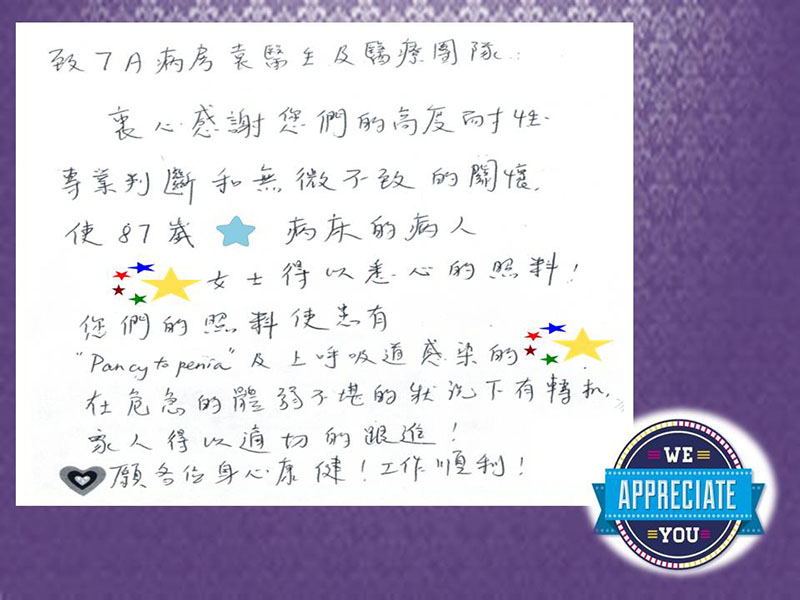 致7A病房袁醫生及醫療團隊：
裏心感謝您們的高度耐性、
專業判斷和無微不致的關懷,
使87歲 病床的病人
女士得以悉心的照料!
您們的照料使患有
"Pancytopenia"及上呼吸道感染的
在危急的體弱不堪的狀況下有轉機,
家人得以適切的跟進!
願各位身心康健!工作順利!
WE
APPRECIATE
YOU